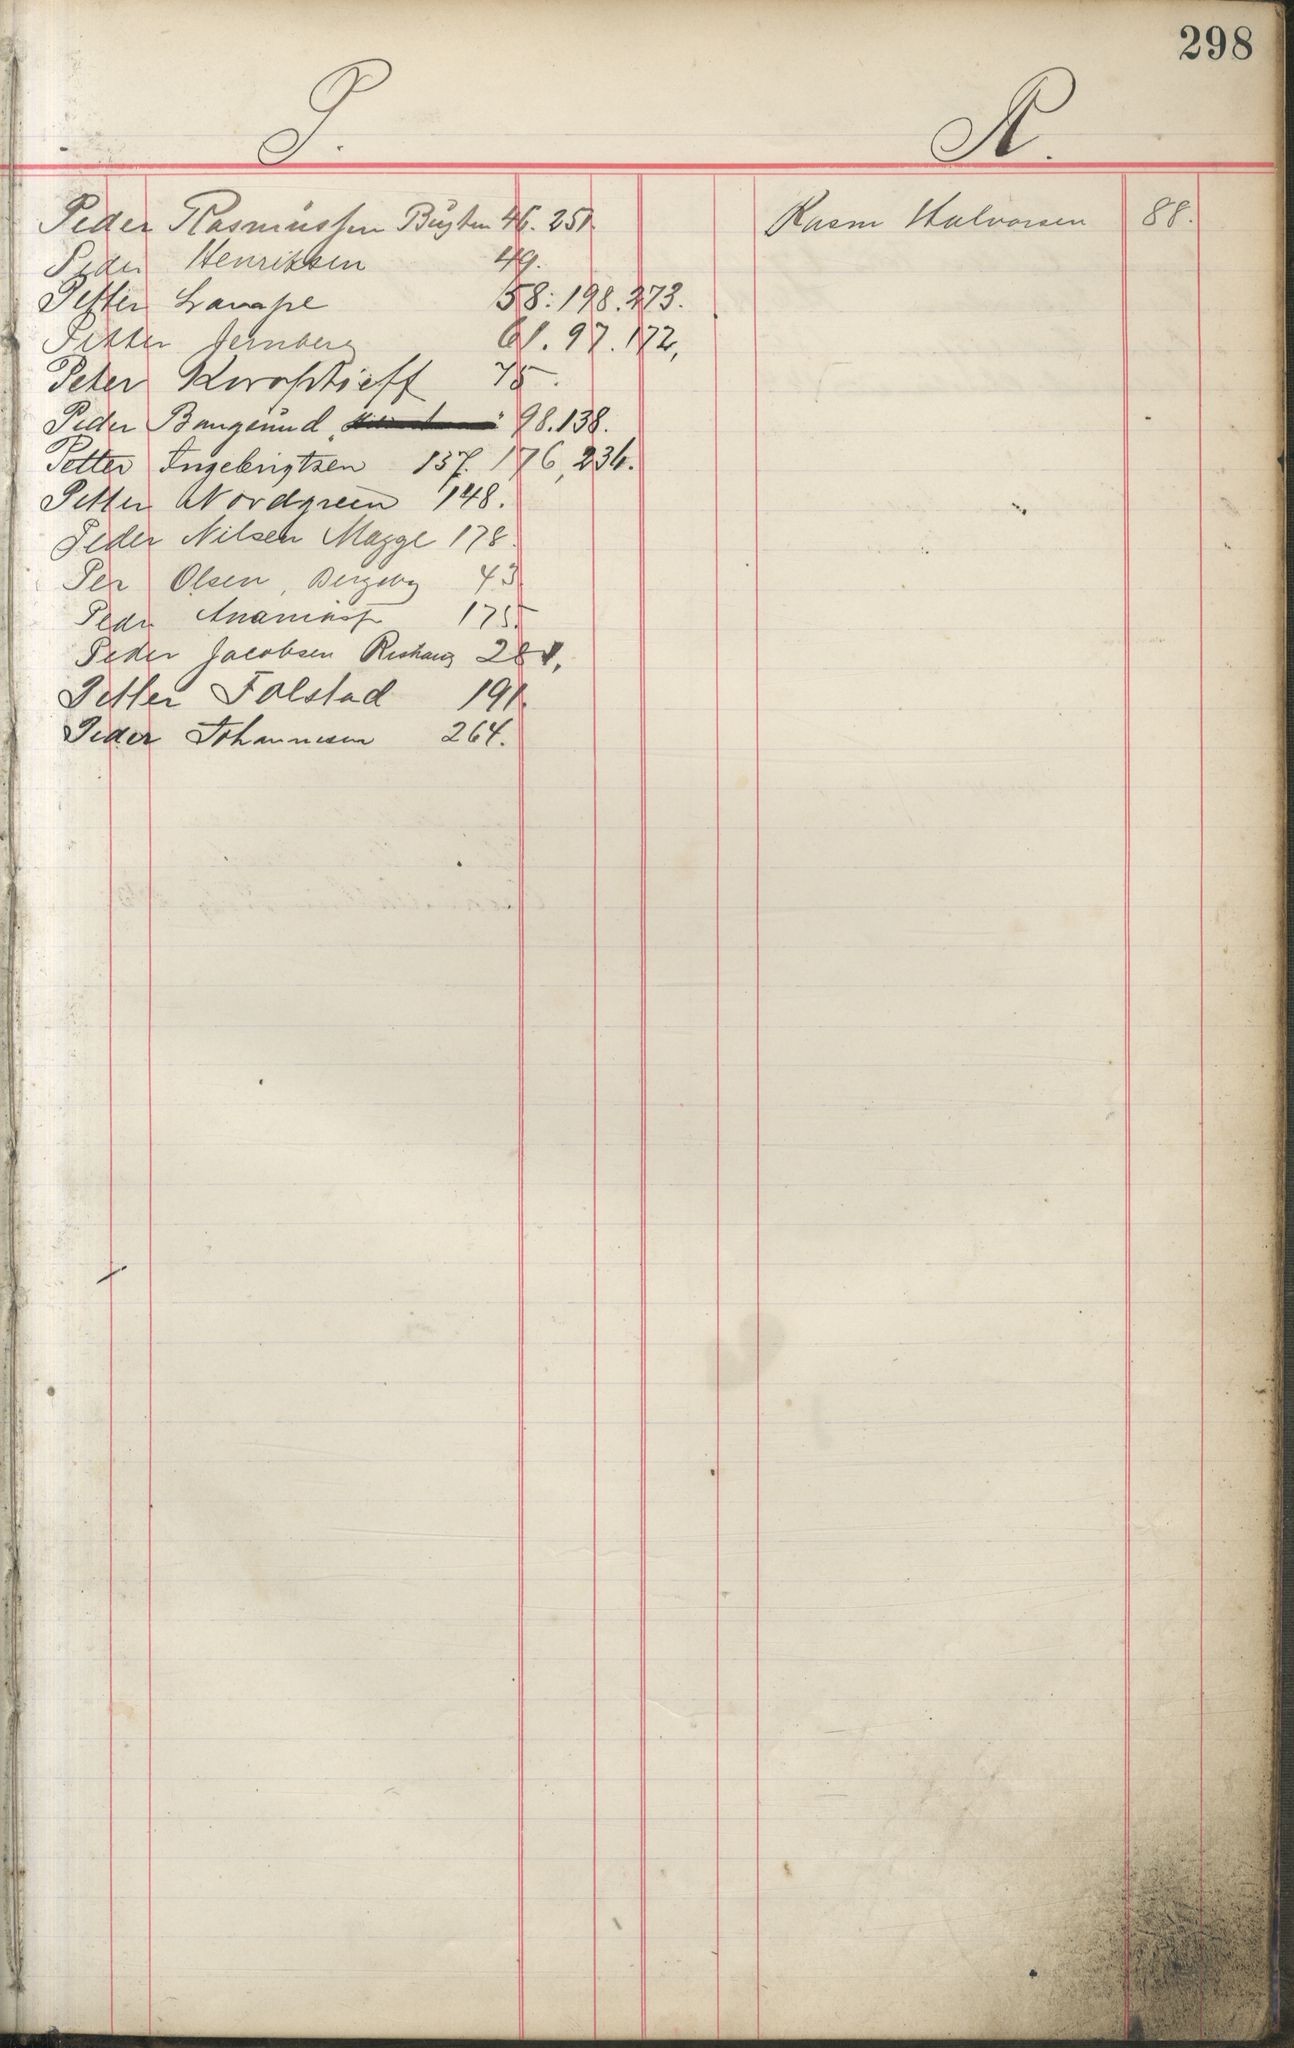 298
P.
Peder Rasmussen 46. 251.
Peder Henriksen 49.
Petter 58. 198. 273.
Petter Jernberg 61. 97. 172,
Peter 75.
Peder Bangsund 98. 138.
Petter Ingebrigtsen 137. 176, 236.
Petter Nordgreen 148.
Peder Nilsen Magge 178.
Per Olsen, Bergeby 43
Peder Ananias 175.
Peder Jacobsen
Petter Folstad 191.
Peder Johannesen 264.
R.
Rasm Halvorsen 88.